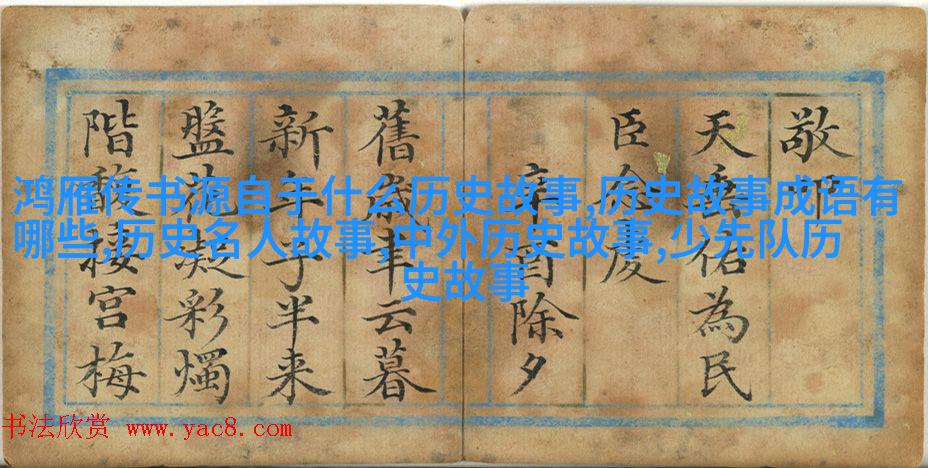 敬
天 佑為民
臣
辛酉除夕
舊歲聿云暮
新年子半来
盤花凝彩燭
階馥接宮梅
鸿雁传书源自于什么历史故事,历史故事成语有
哪些,历史名人故事,中外历史故事,少先队历
史故事
书法欣赏 www.yac8.com